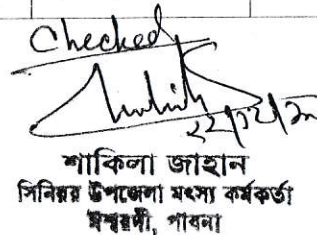 Checked
২২/১২/২০
শাকিলা জাহান
সিনিয়র উপজেলা মৎস্য কর্মকর্তা
ঈশ্বরদী, পাবনা